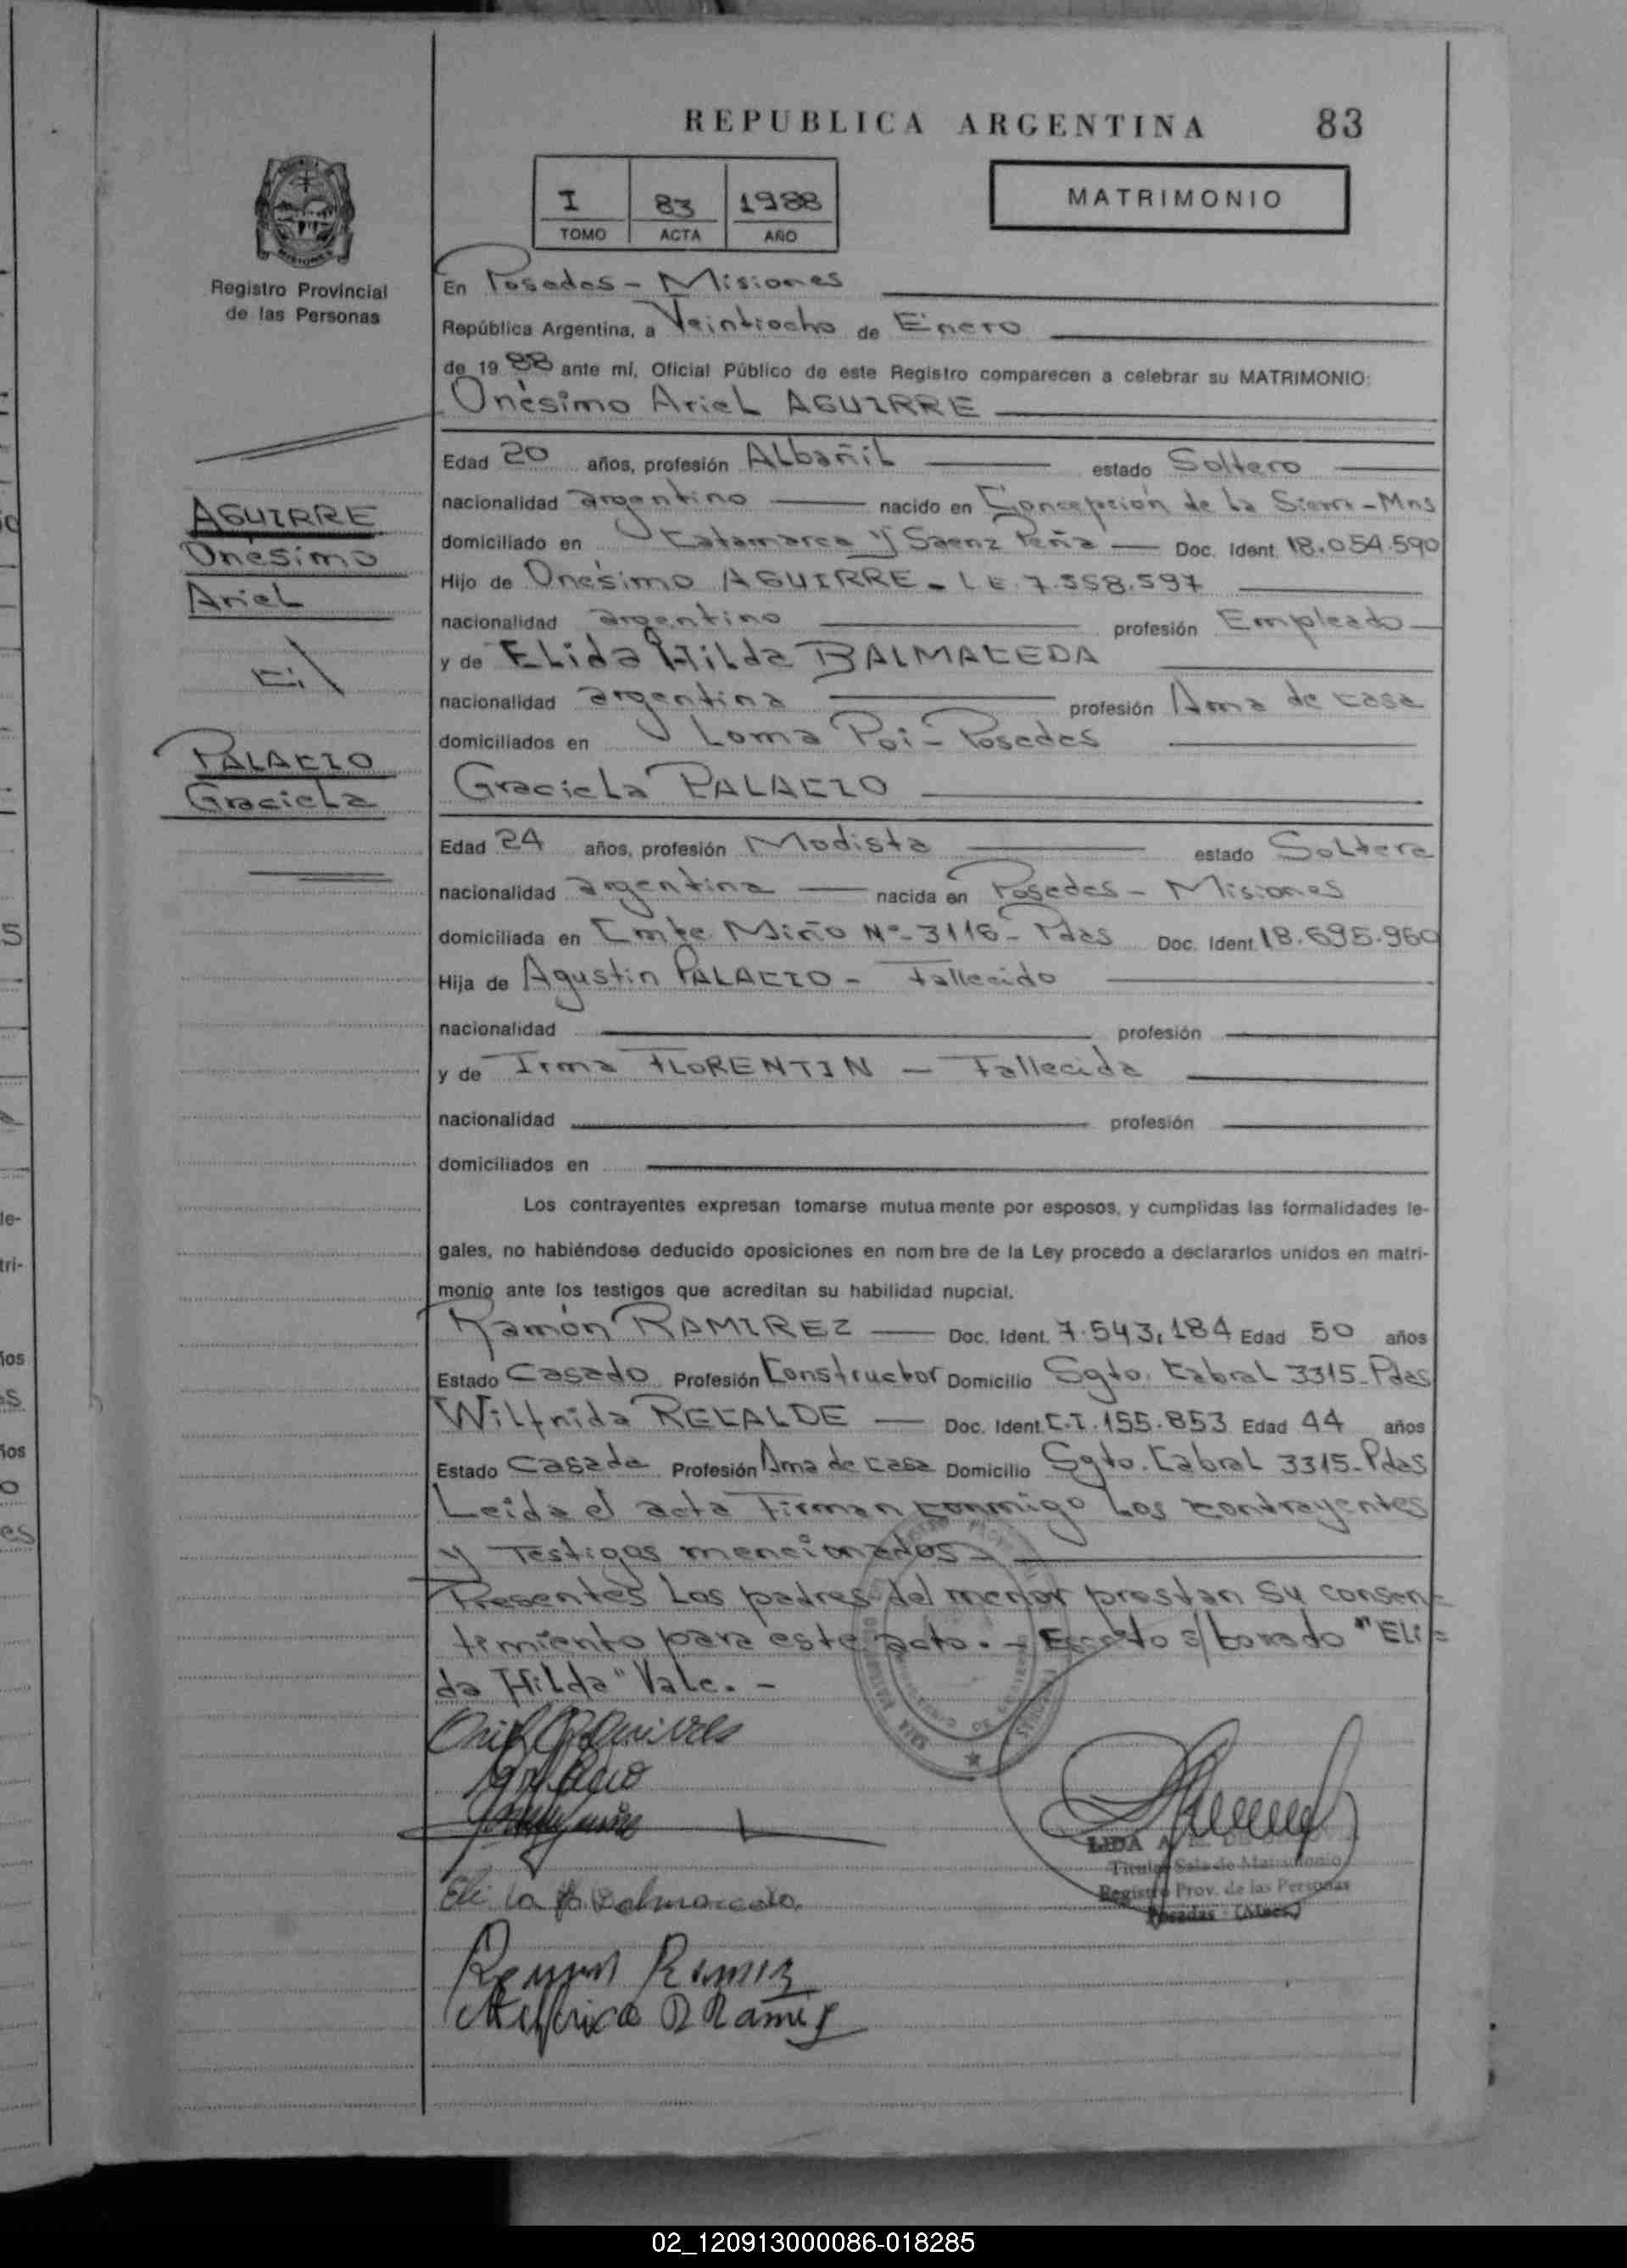 REPUBLICA ARGENTINA 83
MATRIMONIO
I 83 1988
TOMO ACTA AÑO
MISIONES
Registro Provincial
de las Personas
En Posadas - Misiones
República Argentina, a Veintiocho de Enero
de 1988 ante mí, Oficial Público de este Registro comparecen a celebrar su MATRIMONIO:
Onésimo Ariel AGUIRRE
Edad 20 años, profesión Albañil estado Soltero
nacionalidad argentino nacido en Concepción de la Sierra - Mns
domiciliado en Catamarca y Saenz Peña Doc. Ident. 18.054.590
Hijo de Onésimo AGUIRRE - L.E. 7.558.597
nacionalidad argentino profesión Empleado
y de Elida Hilda BALMACEDA
nacionalidad argentina profesión Ama de casa
domiciliados en Loma Poi - Posadas
AGUIRRE
Onésimo
Ariel
c/
PALACIO
Graciela
Graciela PALACIO
Edad 24 años, profesión Modista estado Soltera
nacionalidad argentina nacida en Posadas - Misiones
domiciliada en Cmte. Miño Nº 3116 - Pdas Doc. Ident. 18.695.960
Hija de Agustin PALACIO - Fallecido
nacionalidad profesión
y de Irma FLORENTIN - Fallecida
nacionalidad profesión
domiciliados en
Los contrayentes expresan tomarse mutua mente por esposos, y cumplidas las formalidades le-
gales, no habiéndose deducido oposiciones en nom bre de la Ley procedo a declararlos unidos en matri-
monio ante los testigos que acreditan su habilidad nupcial.
Ramón RAMIREZ Doc. Ident. 7.543,184 Edad 50 años
Estado Casado Profesión Constructor Domicilio Sgto. Cabral 3315 - Pdas
Wilfrida RECALDE Doc. Ident. C.I. 155.853 Edad 44 años
Estado Casada Profesión Ama de casa Domicilio Sgto. Cabral 3315 - Pdas
Leida el acta Firman conmigo Los contrayentes
y Testigos mencionados -
Presentes Los padres del menor prestan su consen=
timiento para este acto. - Escrito s/borrado "Eli=
da Hilda" Vale. -
LIDA A
Titular Sala de Matrimonio
Registro Prov. de las Personas
Posadas - (Mnes.)
Ramon Ramirez
02_120913000086-018285